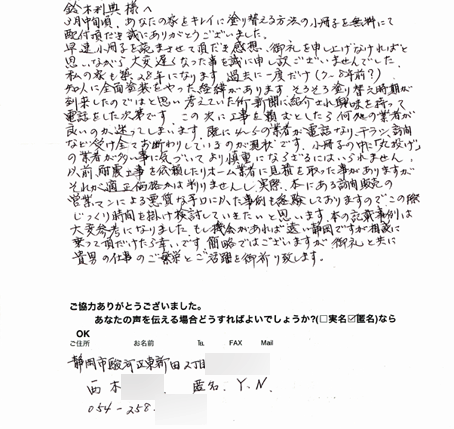 鈴木利典 様へ
3月中旬頃、あなたの家をキレイに塗り替える方法の小冊子を無料にて
配付頂き誠にありがとうございました。
早速小冊子を読ませて頂き感想、御礼を申し上げなければと
思いながら大変遅くなった事を誠に申し訳ございませんでした。
私の家も築28年になります。過去に一度だけ(7~8年前?)
知人に全面塗装をやった経緯があります。そろそろ塗り替え時期が
到来したのではと思い考えていた折、新聞に紹介され興味を持って
電話をした次第です。この次に工事を頼むとしたら何処の業者が
良いのか迷ってしまいます。既に の業者が電話なり、チラシ、訪問
など受け全てお断わりしているのが現状です。小冊子の中に「丸投げ」
の業者が多い事に気づいてより慎重にならざるにはいられません。
以前、耐震工事を依頼したリホーム業者に見積を取った事がありますが
それが適正価格かは判りませんし、実際、本にある訪問販売の
営業マンによる悪質な手口に似た事例も経験しておりますのでこの際
じっくり時間を掛け検討していきたいと思います。本の記載事例は
大変参考になりました。もし機会があれば遠い静岡ですが相談に
乗って頂けたら幸いです。簡略ではございますが御礼と共に
貴男の仕事のご繁栄とご活躍を御祈り致します。
ご協力ありがとうございました。
あなたの声を伝える場合どうすればよいでしょうか?(□実名☑匿名)なら
OK
ご住所 お名前 ℡ FAX Mail
静岡市駿河区東新田2丁目
西木 匿名. Y.N.
054-258.